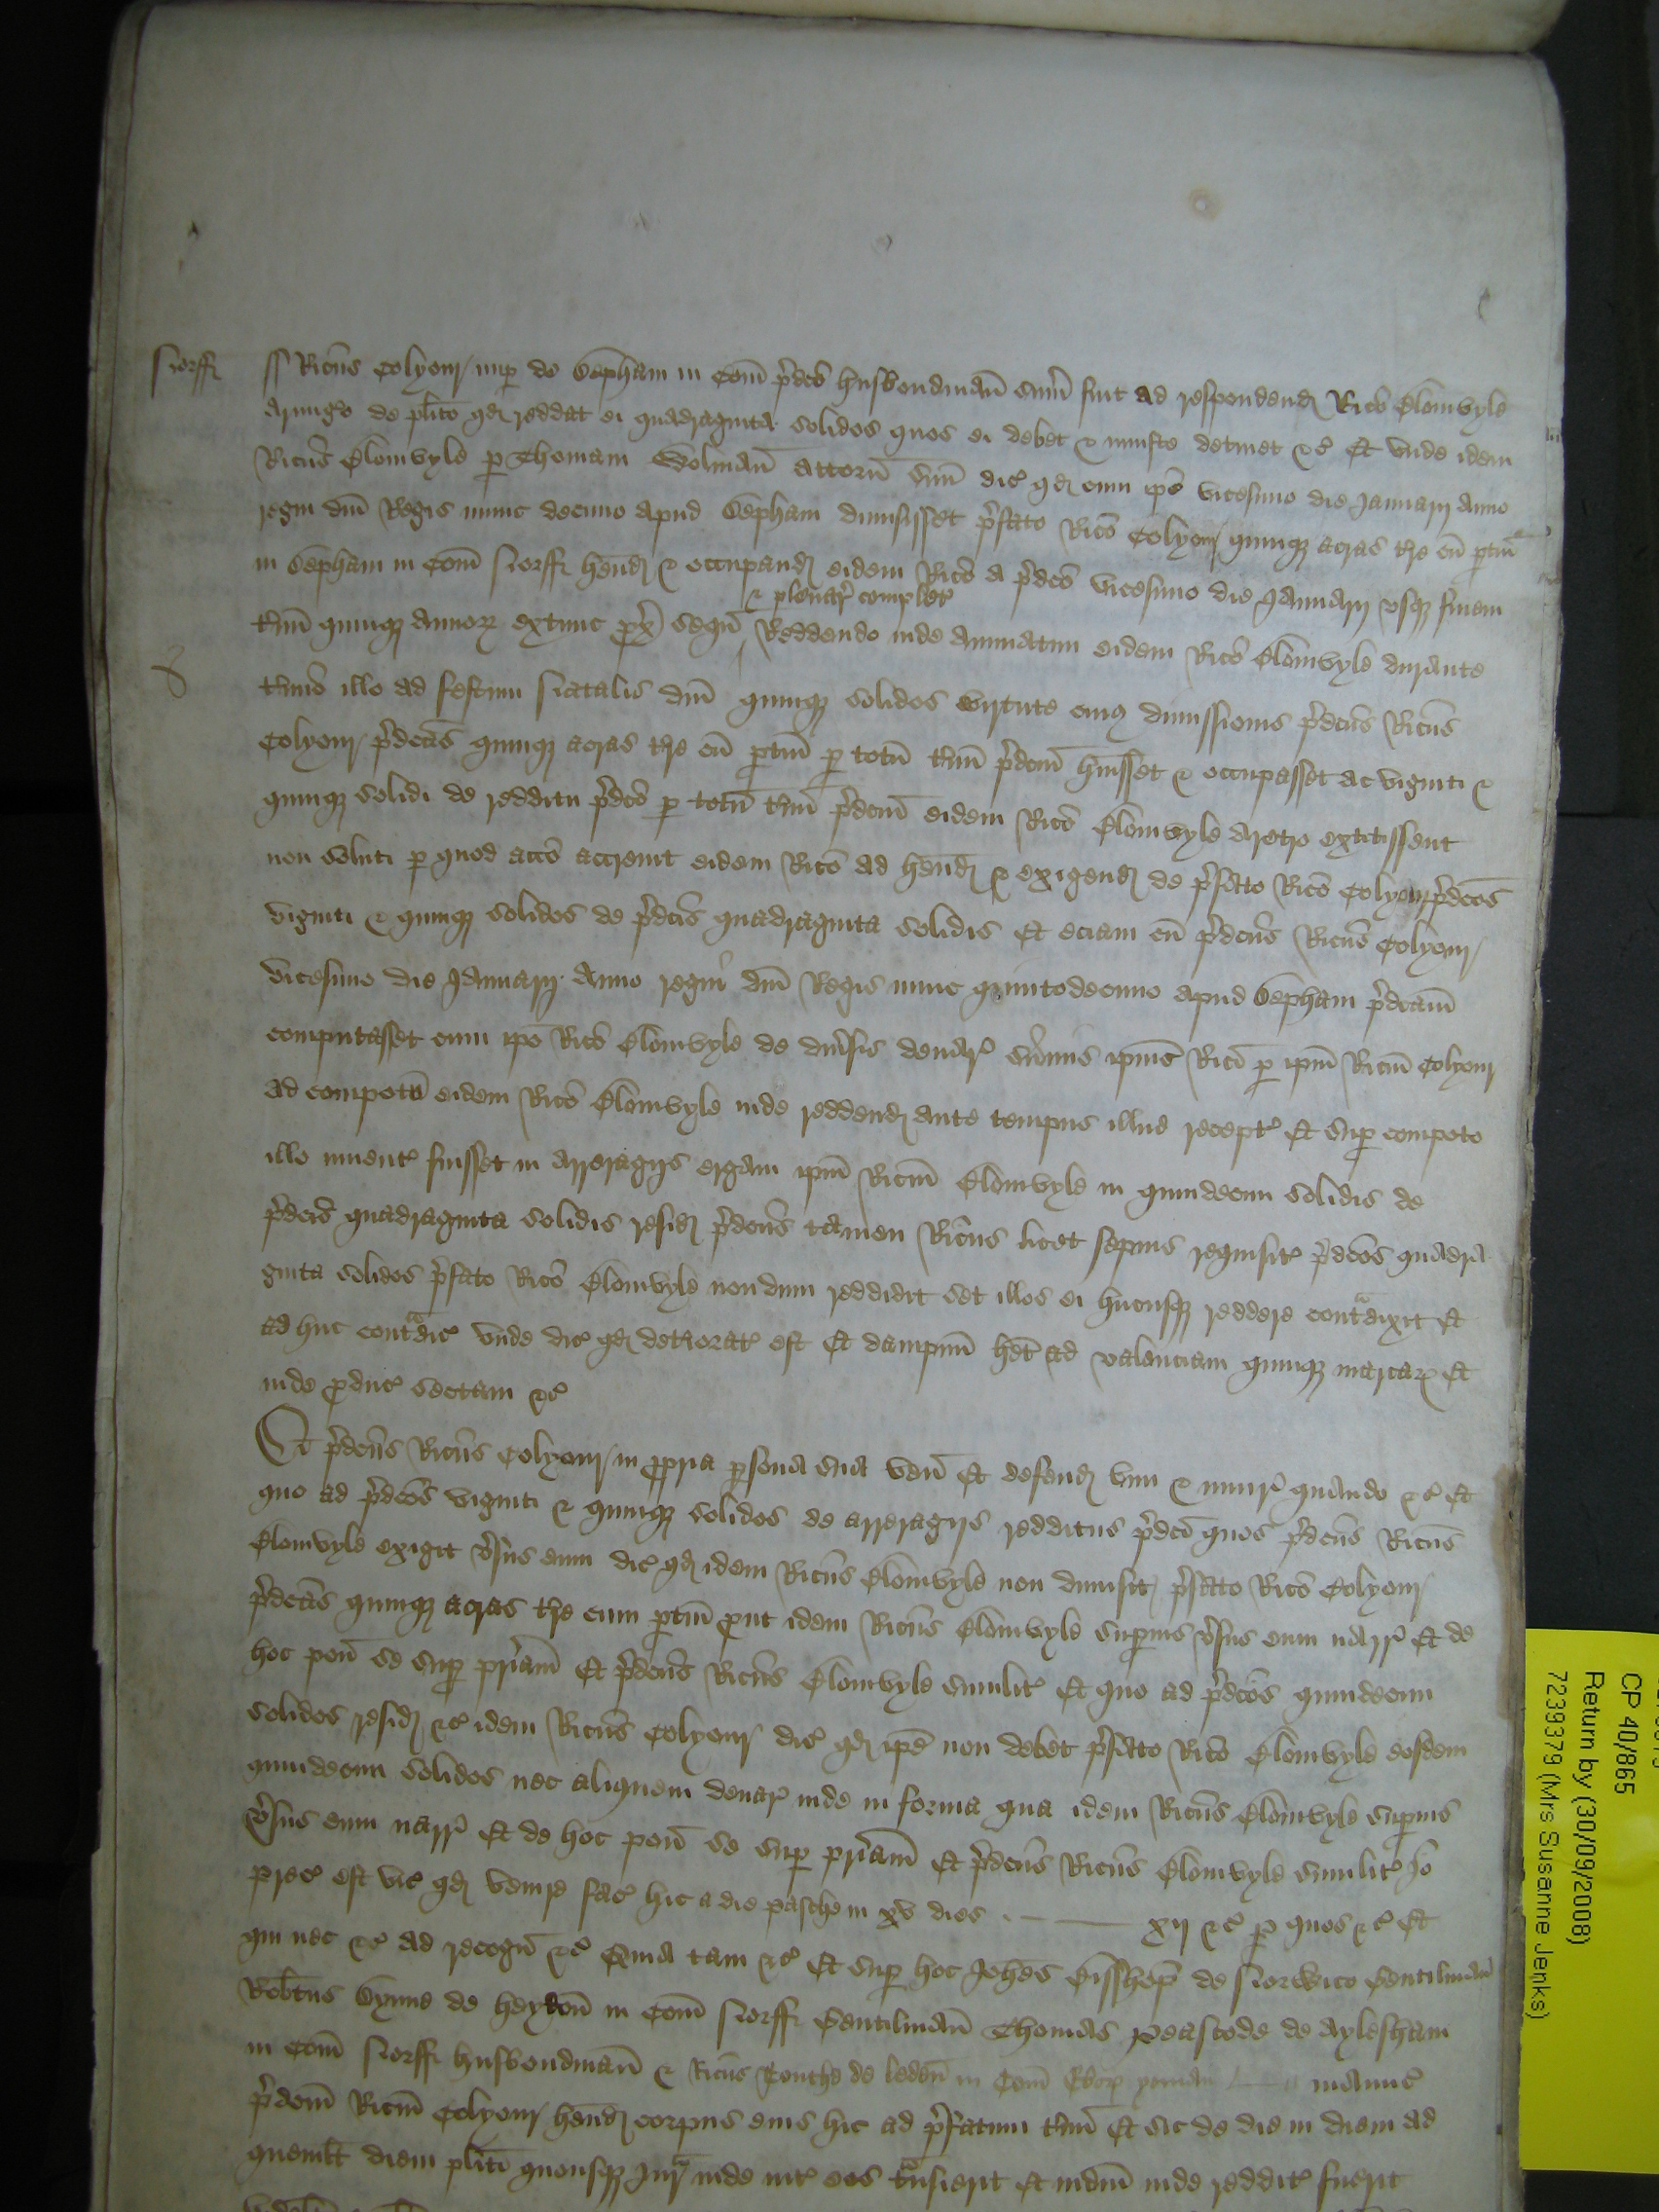 Norff
ss Ricus Colyour nup de Sepham in Com p̄dco husbondman sum̄ fuit ad respondend Rico Blomvyle
Armigo de plito qd reddat ei quadraginta solidos quos ei debet & iniuste detinet &c Et unde idem
Ricus Blomvyle p Thomam Wolman attorn suū dic qd cum ipe vicesimo die Januarij Anno
regni dni Regis nunc decimo apud Sepham dimisisset p̄fato Rico Colyour quinq acras tre cū ptin
in Sepham in Com Norff hend & occupand eidem Rico a p̄dco vicesimo die Januarij usq finem
& plenar complet
tmi quinq annoz extunc px sequ Reddendo inde annuatim eidem Rico Blomvyle durante
tmio illo ad festum Natalis dni quinq solidos virtute cuius dimissionis p̄dcus Ricus
Colyour p̄dcas quinq acras tre cū ptin p totū tmū p̄dcm huisset & occupasset ac viginti &
quinq solidi de redditu p̄dco p totū tmū p̄dcm eidem Rico Blomvyle aretro extitissent
non soluti p quod acco accrevit eidem Rico ad hend & exigend de p̄fato Rico Colyour p̄dcos
viginti & quinq solidos de p̄dcis quadraginta solidis Et eciam cū p̄dcus Ricus Colyour
vicesimo die Januarij Anno regni dni Regis nunc quintodecimo apud Sepham p̄dcam
computasset cum ipo Rico Blomvyle de divsis denar sum̄is ipius Rici p ipm Ricm Colyour
ad compotū eidem Rico Blomvyle inde reddend ante tempus illud recept Et sup compoto
illo invent fuisset in arreragijs ergam ipm Ricm Blomvyle in quindecim solidis de
p̄dcis quadraginta solidis resid p̄dcus tamen Ricus licet sepius requisit p̄dcos quadra
ginta solidos p̄fato Rico Blomvyle nondum reddidit set illos ei hucusq reddere contᵃdixit Et
ad huc contᵃdic unde dic qd deteriorat est Et dampnū het ad valenciam quinq marcaz Et
inde pduc sectam &c
Et p̄dcus Ricus Colyour in ppria psona sua ven Et defend vim & iniur quando &c Et
quo ad p̄dcos viginti & quinq solidos de arreragijs redditus p̄dci quos p̄dcus Ricus
Blomvyle exigit vsus eum dic qd idem Ricus Blomvyle non dimisit p̄fato Rico Colyour
p̄dcas quinq acras tre cum ptin put idem Ricus Blomvyle supius vsus eum narr Et de
hoc pon se sup priam Et p̄dcus Ricus Blomvyle similit Et quo ad p̄dcos quindecim
solidos resid &c idem Ricus Colyour dic qd ipe non debet p̄fato Rico Blomvyle eosdem
quindecim solidos nec aliquem denar inde in forma qua idem Ricus Blomvyle supius
vsus eum narr Et de hoc pon se sup priam Et p̄dcus Ricus Blomvyle similit Jo
prec est vic qd venire fac hic a die pasche in xv dies xij &c p quos &c Et
qui nec &c ad recogn &c Quia tam &c Et sup hoc Johes Bisshop de Norwico Gentilman
Robtus Gynne de Heydon in Com Norff Gentilman Thomas Peascode de Aylesham
in Com Norff husbondman & Ricus Couthe de Ledes in Com Eboz yoman manuc
p̄dcm Ricm Colyour hend corpus eius hic ad p̄fatum tmū Et sic de die in diem ad
quemlt diem pliti quousq Jurᵃ inde int eos tᵃnsierit Et iudm inde reddit fuerit
CP 40/865
Return by (30/09/2008)
7239379 (Mrs Susanne Jenks)